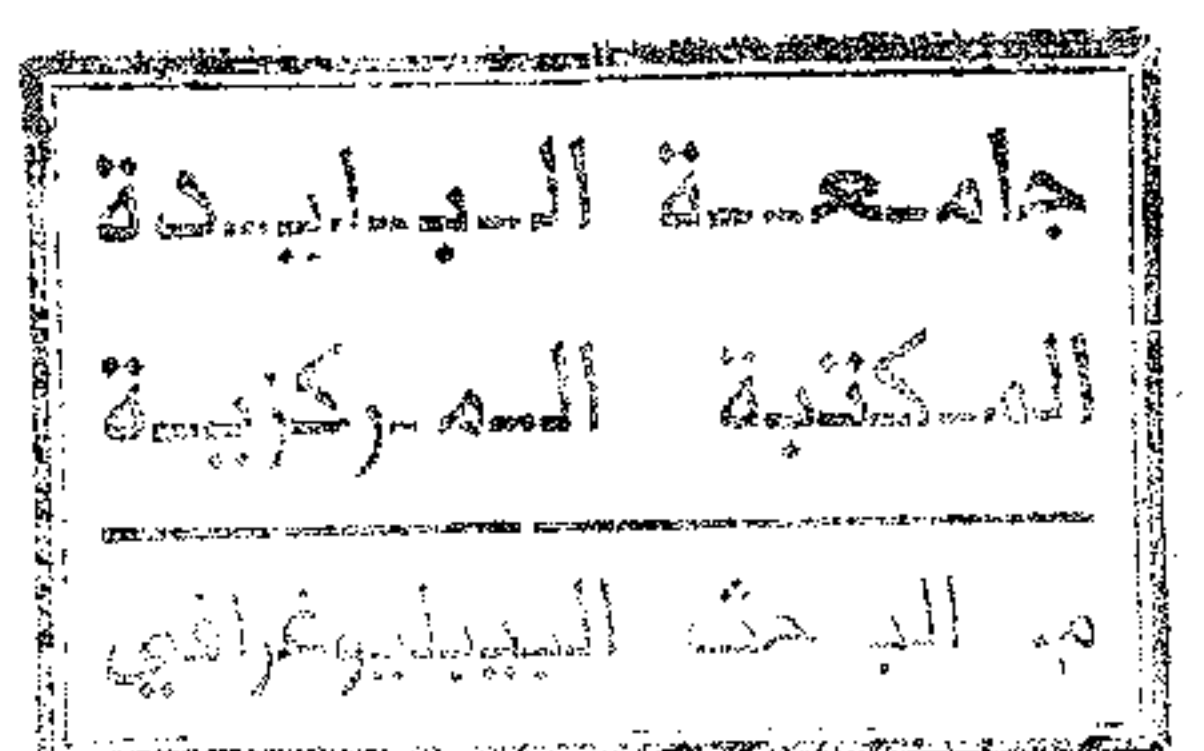 جامعة البليدة
المكتبة المركزية
م البحث البيبليوغرافي